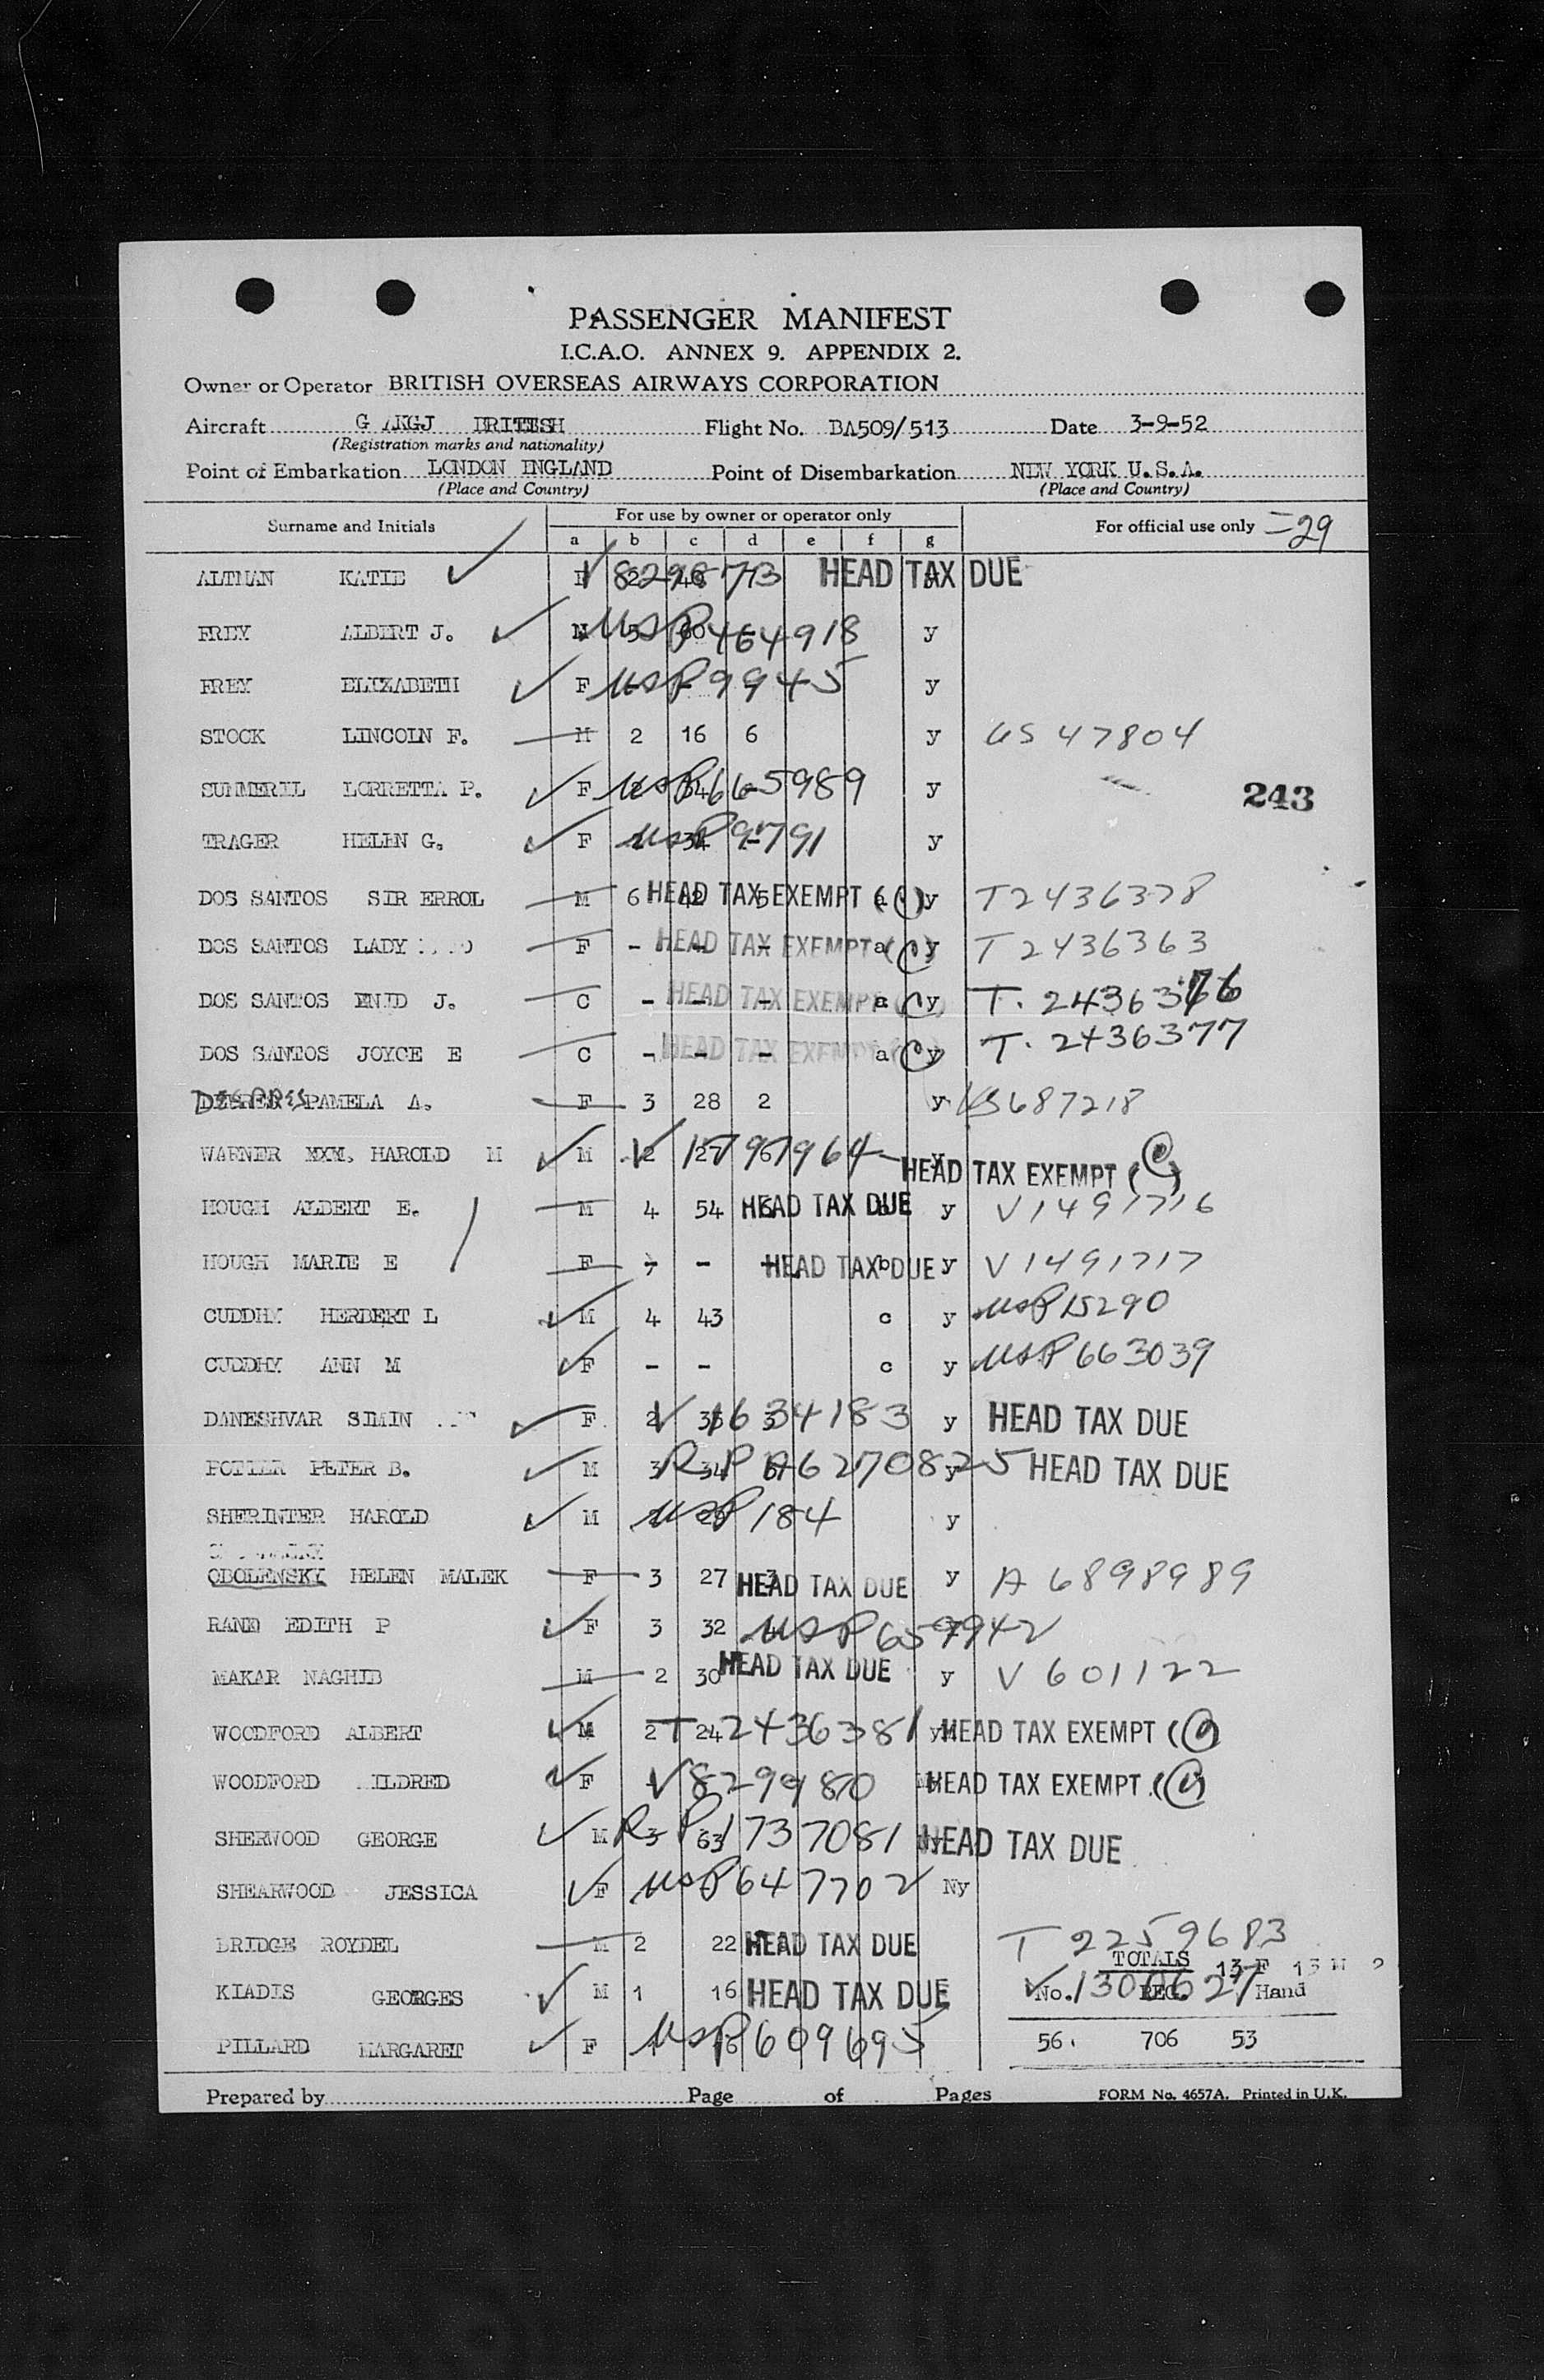 PASSENGER MANIFEST
I.C.A.O. ANNEX 9. APPENDIX 2.
Owner or Operator BRITISH OVERSEAS AIRWAYS CORPORATION
Aircraft G AKGJ BRITISH Flight No. BA509/513 Date 3-9-52
(Registration marks and nationality)
Point of Embarkation LONDON ENGLAND Point of Disembarkation NEW YORK U.S.A.
(Place and Country) (Place and Country)
Surname and Initials For use by owner or operator only For official use only =29
a b c d e f g
ALTMAN KATIE V 8298773 HEAD TAX DUE
FREY ALBERT J. M USP 464918 y
FREY ELIZABETH F USP 9945 y
STOCK LINCOLN F. M 2 16 6 y US 47804
SUMMERIL LORRETTA P. F USP 665989 y
243
TRAGER HELEN G. F USP 9791 y
DOS SANTOS SIR ERROL M 6 42 5 HEAD TAX EXEMPT (c) y T2436378
DOS SANTOS LADY F - - - HEAD TAX EXEMPT a (c) y T 2436363
DOS SANTOS ENID J. C - - - HEAD TAX EXEMPT a (c) y T. 2436376
DOS SANTOS JOYCE E C - - - HEAD TAX EXEMPT a (c) y T. 2436377
PAMELA A. F 3 28 2 y US687218
WARNER MXM. HAROLD M M 2 27 V 1797964 HEAD TAX EXEMPT (c)
HOUGH ALBERT E. M 4 54 HEAD TAX DUE b y V1491716
HOUGH MARIE E F - - - HEAD TAX DUE b y V1491717
CUDDHY HERBERT L M 4 43 c y USP 15290
CUDDHY ANN M F - - c y USP 663039
DANESHVAR SIMIN F 2 V 1634183 y HEAD TAX DUE
PETER B. M 3 34 RP A6270825 y HEAD TAX DUE
SHERINTER HAROLD M USP 184 y
OBOLENSKY HELEN MALEK F 3 27 3 HEAD TAX DUE y A 6898989
RAND EDITH P F 3 32 USP 659942
MAKAR NAGHIB M 2 30 HEAD TAX DUE y V 601122
WOODFORD ALBERT M 2 24 T 2436381 y HEAD TAX EXEMPT (c)
WOODFORD MILDRED F V 8299980 HEAD TAX EXEMPT (c)
SHERWOOD GEORGE M 3 63 RP 1737081 HEAD TAX DUE
SHEARWOOD JESSICA F USP 647702 Ny
BRIDGE ROYDEL M 2 22 HEAD TAX DUE T 2259683
TOTALS 13 F 13 M 2
KIADIS GEORGES M 1 16 HEAD TAX DUE V 1300627
No. REG. Hand
PILLARD MARGARET F USP 609695 56. 706 53
Prepared by Page of Pages FORM No. 4657A. Printed in U.K.